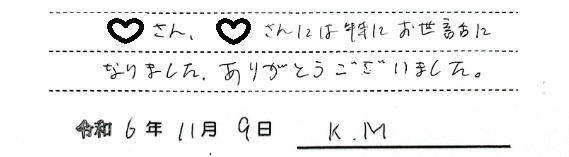 ♡さん、♡さんには特にお世話に
なりました。ありがとうございました。
令和 6 年 11 月 9 日 K.M